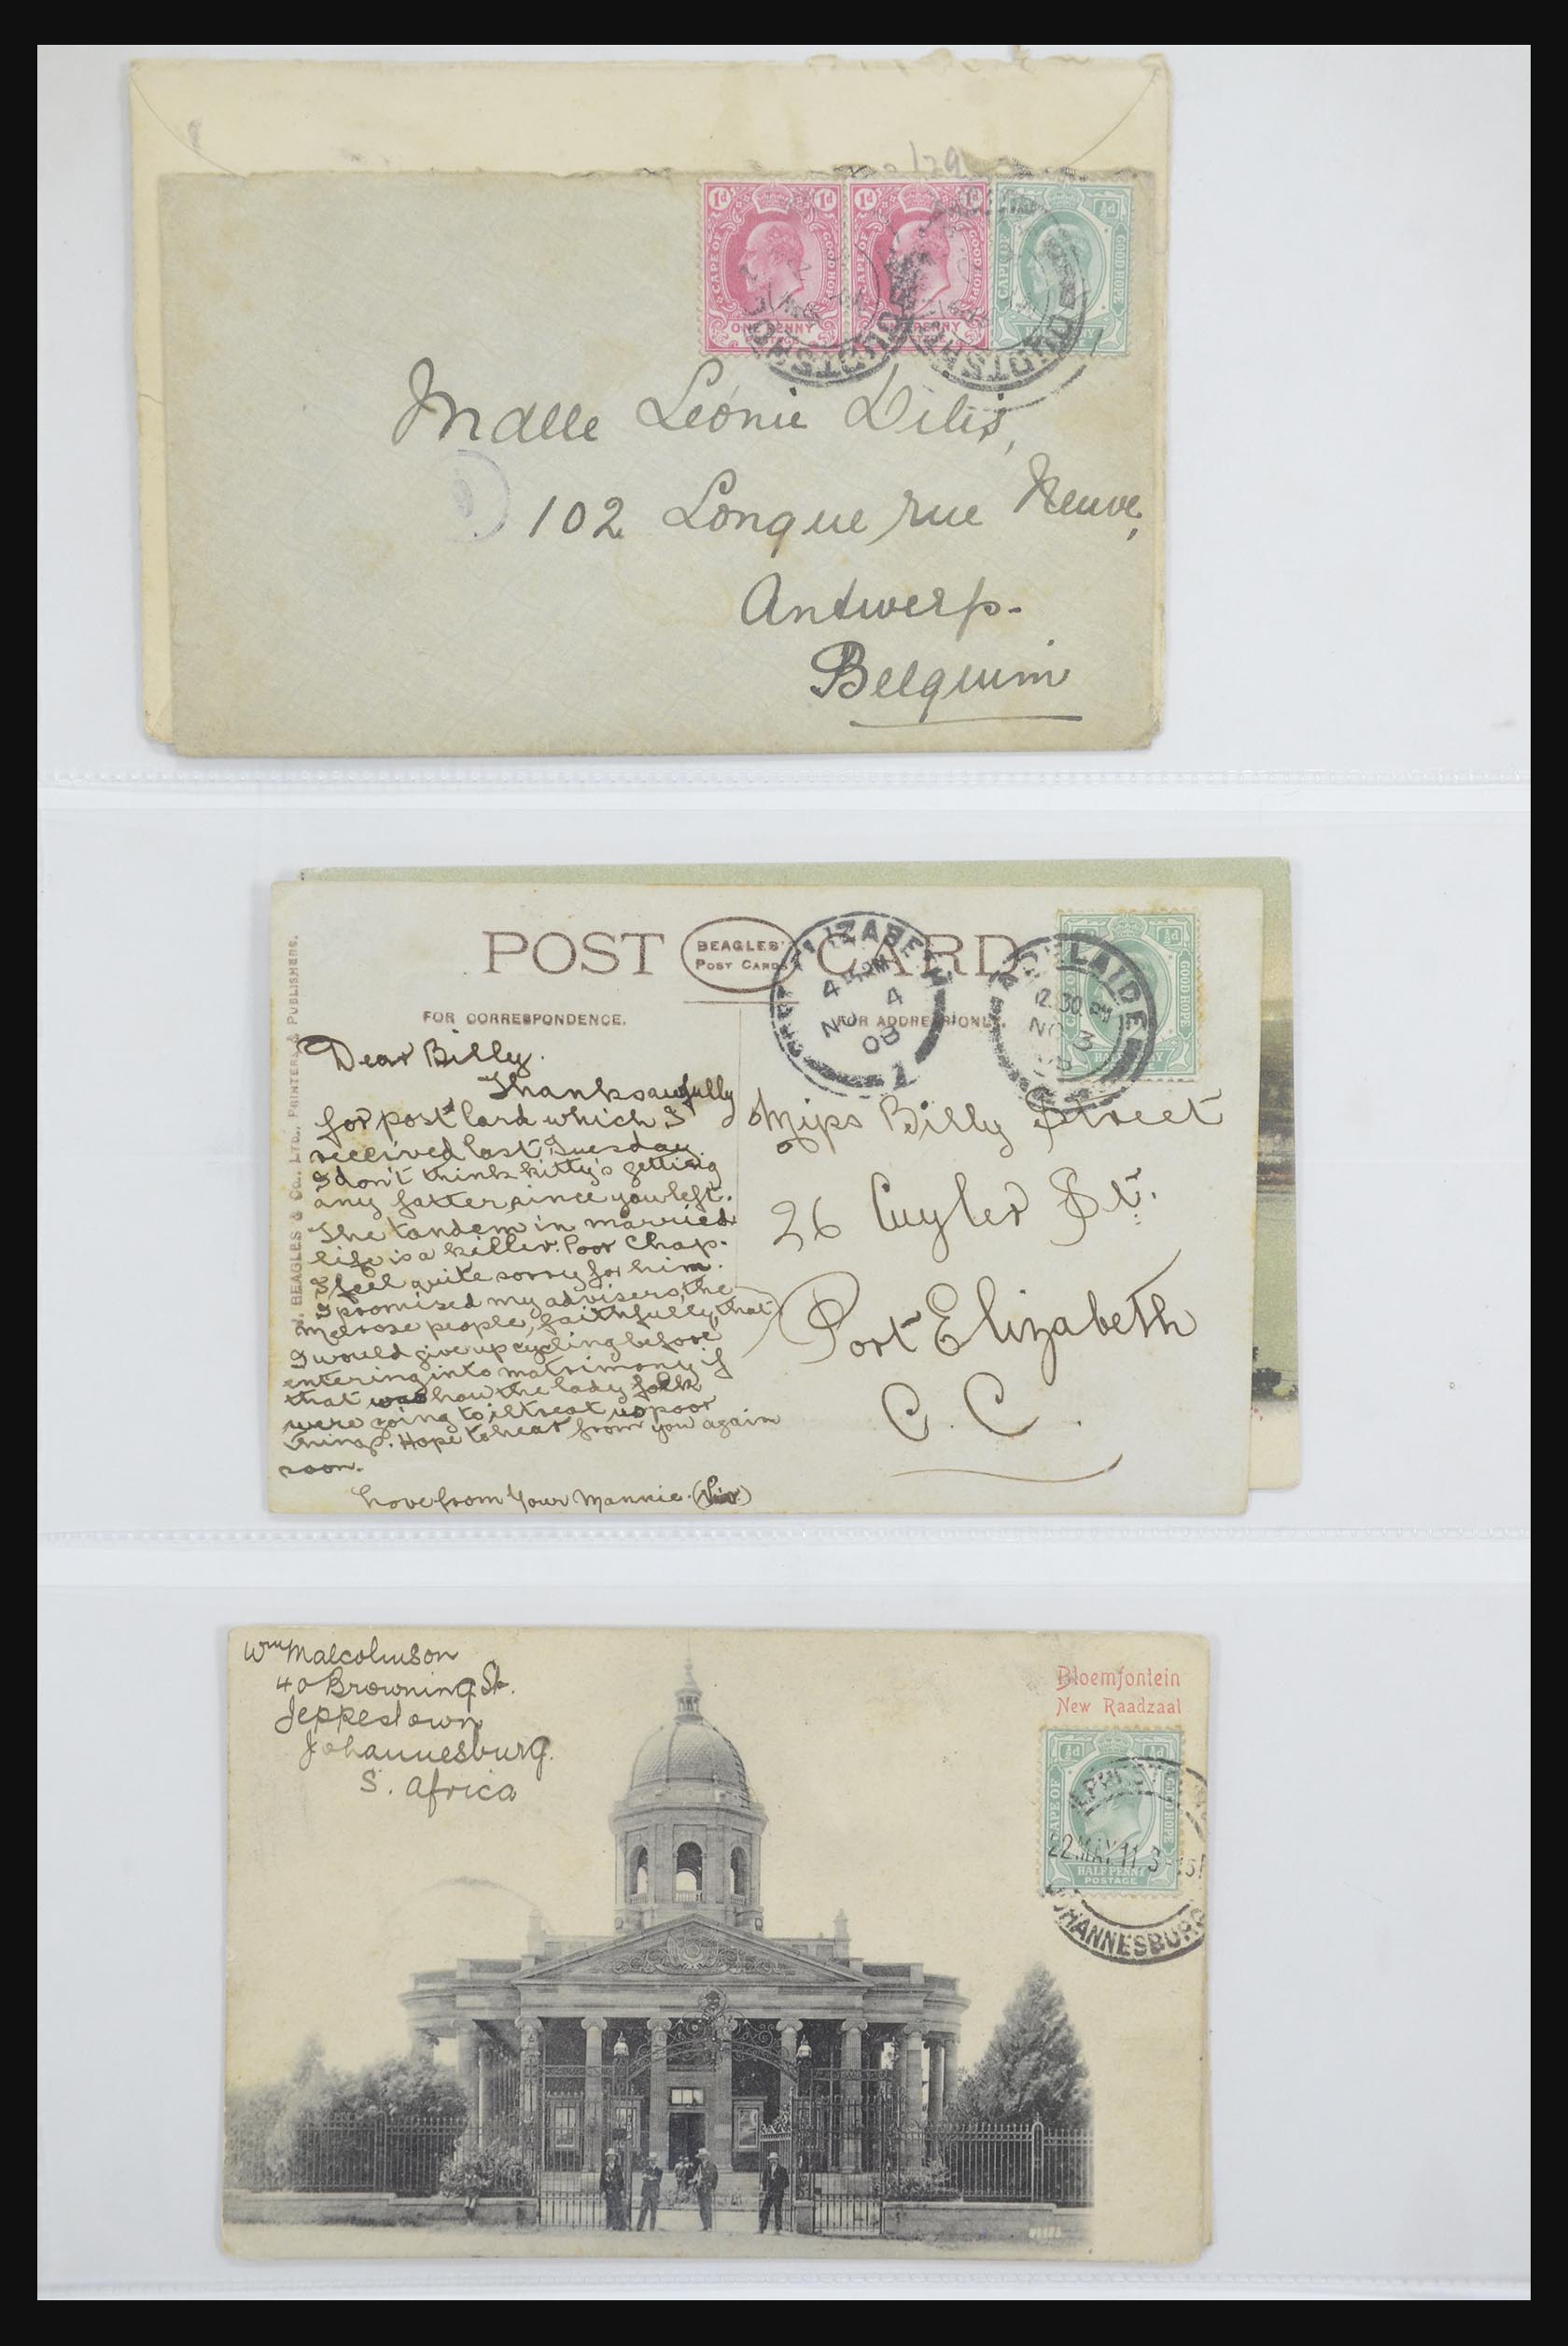 129
1d 1d
1d 1d
½d
CAPE OF GOOD HOPE
CAPE OF GOOD HOPE
CAPE OF GOOD HOPE
ONE PENNY
POSTAGE
PENNY
Mdlle Léonie Dilis,
102 Longue rue Neuve,
Antwerp.
Belgium
POST CARD
BEAGLES'
POST CARDS
FOR CORRESPONDENCE.
FOR ADDRESS ONLY.
J. BEAGLES & Co., LTD., PRINTERS & PUBLISHERS.
ELIZABETH
4
NO 4
08
1
ADELAIDE
12.30 PM
NO 3
08
½d
GOOD HOPE
Dear Billy.
Thanks awfully
for post card which I
received last Tuesday.
I don't think kitty's getting
any fatter since you left.
The tandem in married
life is a killer. Poor Chap.
I feel quite sorry for him.
I promised my advisers, the
Melrose people, faithfully, that
I would give up cycling before
entering into matrimony if
that was how the lady folk
were going to iltreat us poor
things. Hope to hear from you again
soon.
Love from Your Mannie.
Miss Billy Street
26 Cuyler St.
Port Elizabeth
C.C.
Wm Malcolmson
40 Browning St.
Jeppestown
Johannesburg.
S. Africa
Bloemfontein
New Raadzaal
½d ½d
CAPE OF GOOD HOPE
HALF PENNY
POSTAGE
22 MAY 11 3
JOHANNESBURG